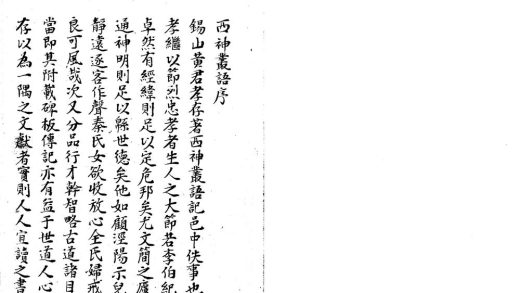 西神叢語序
錫山黃君孝存著西神叢語記邑中佚事也
孝繼以節烈忠孝者生人之大節若李伯紀
卓然有經緯則足以定危邦矣尤文簡之廬
通神明則足以縣世德矣他如顧涇陽示兒
靜遠逐客作聲秦氏女欲收放心全氏婦戒
良可風哉次又分品行才幹智略古道諸目
當即其附載碑板傳記亦有益于世道人心
存以為一隅之文獻者實則人人宜讀之書